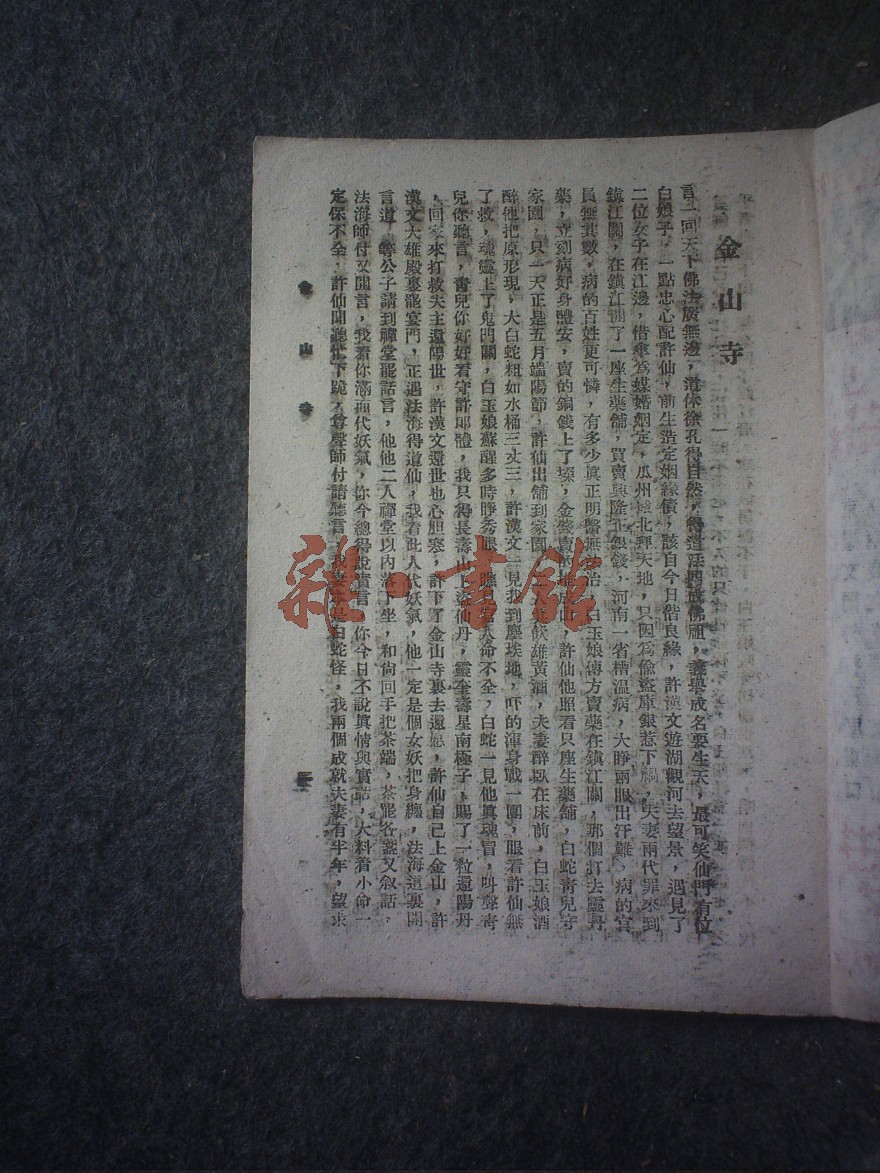 金山寺
言一回天下佛法廣無邊，道休徐孔得自然，得道法門成佛祖，養畢成名要生天，最可笑仙門有位
白娘子，一點忠心配許仙，前生造定姻緣債，該自今日偕良緣，許漢文遊湖觀河去望景，遇見了
二位女子在江邊，借傘爲媒婚姻定，瓜州 北拜天地，只因爲偷盜庫銀惹下禍，夫妻兩代罪來到
鎮江關，在鎮江開了一座生藥舖，買賣興隆正銀錢，河南一省糟溫病，大睜兩眼出汗難，病的官
員無其數，病的百姓更可憐，有多少眞正明醫無 治，白玉娘傳方賣藥在鎮江關，那個打去靈丹
藥，立刻病好身體安，賣的銅錢上了垜，金銀賣的 山，許仙他照看只座生藥舖，白蛇靑兒守
家園，只一天正是五月端陽節，許仙出舖到家園， 飲雄黃酒，夫妻醉臥在床前，白玉娘酒
醉他把原形現，大白蛇粗如水桶三丈三，許漢文一見我到塵埃地，吓的渾身戰一團，眼看許仙無
了救，魂靈上了鬼門關，白玉娘蘇醒多時睜秀眼，瞧 人命不全，白蛇一見他眞魂冒，叫聲靑
兒你聽言，靑兒你好好看守許郎體，我只得長壽山上盜仙丹，靈 壽星南極子，賜了一粒還陽丹
，回家來打救夫主還陽世，許漢文還世也心胆寒，許下了金山寺裏去還愿，許仙自己上金山，許
漢文大雄殿裏罷宴門，正遇法海得道仙，我看此人代妖氣，他一定是個女妖把身纏，法海這裏開
言道，尊公子請到禪堂罷話言，他他二人禪堂以內落下坐，和尙回手把茶端，茶罷各盞又叙話，
法海師付又開言，我看你滿面代妖氣，你今總得說實言，你今日不說眞情與實話，大料着小命一
定保不全，許仙聞聽忙下跪，尊聲師付請聽言，我妻本是白蛇怪，我兩個成就夫妻有半年，望求
金山寺
三
雜·書館